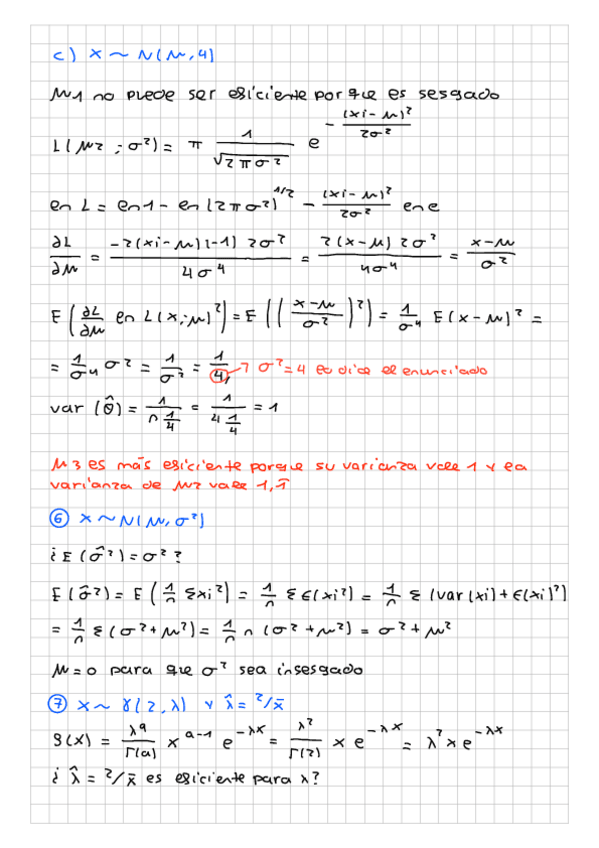 c) X ~ N(μ, 4)
μ1 no puede ser eficiente porque es sesgado
L(μ2 ; σ²) = π 1/√(2πσ²) e^(-(xi-μ)²/2σ²)
ln L = ln 1 - ln (2πσ²)^(1/2) - (xi-μ)²/2σ² ln e
∂L/∂μ = -2(xi-μ)(-1) 2σ²/4σ⁴ = 2(x-μ) 2σ²/4σ⁴ = x-μ/σ²
E(∂L/∂μ ln L(x;μ)²) = E((x-μ/σ²)²) = 1/σ⁴ E(x-μ)² =
= 1/σ⁴ σ² = 1/σ² = 1/4, → σ²=4 lo dice el enunciado
var(θ̂) = 1/(n 1/4) = 1/(4 1/4) = 1
μ3 es más eficiente porque su varianza vale 1 y la
varianza de μ2 vale 1,1̄
⑥ X ~ N(μ, σ²)
¿E(σ̂²) = σ²?
E(σ̂²) = E(1/n Σxi²) = 1/n Σ E(xi²) = 1/n Σ (var(xi) + E(xi)²)
= 1/n Σ(σ²+μ²) = 1/n n(σ²+μ²) = σ²+μ²
μ=0 para que σ² sea insesgado
⑦ X ~ γ(2, λ) y λ̂ = 2/x̄
f(x) = λ^a/Γ(a) x^(a-1) e^(-λx) = λ²/Γ(2) x e^(-λx) = λ² x e^(-λx)
¿λ̂ = 2/x̄ es eficiente para λ?